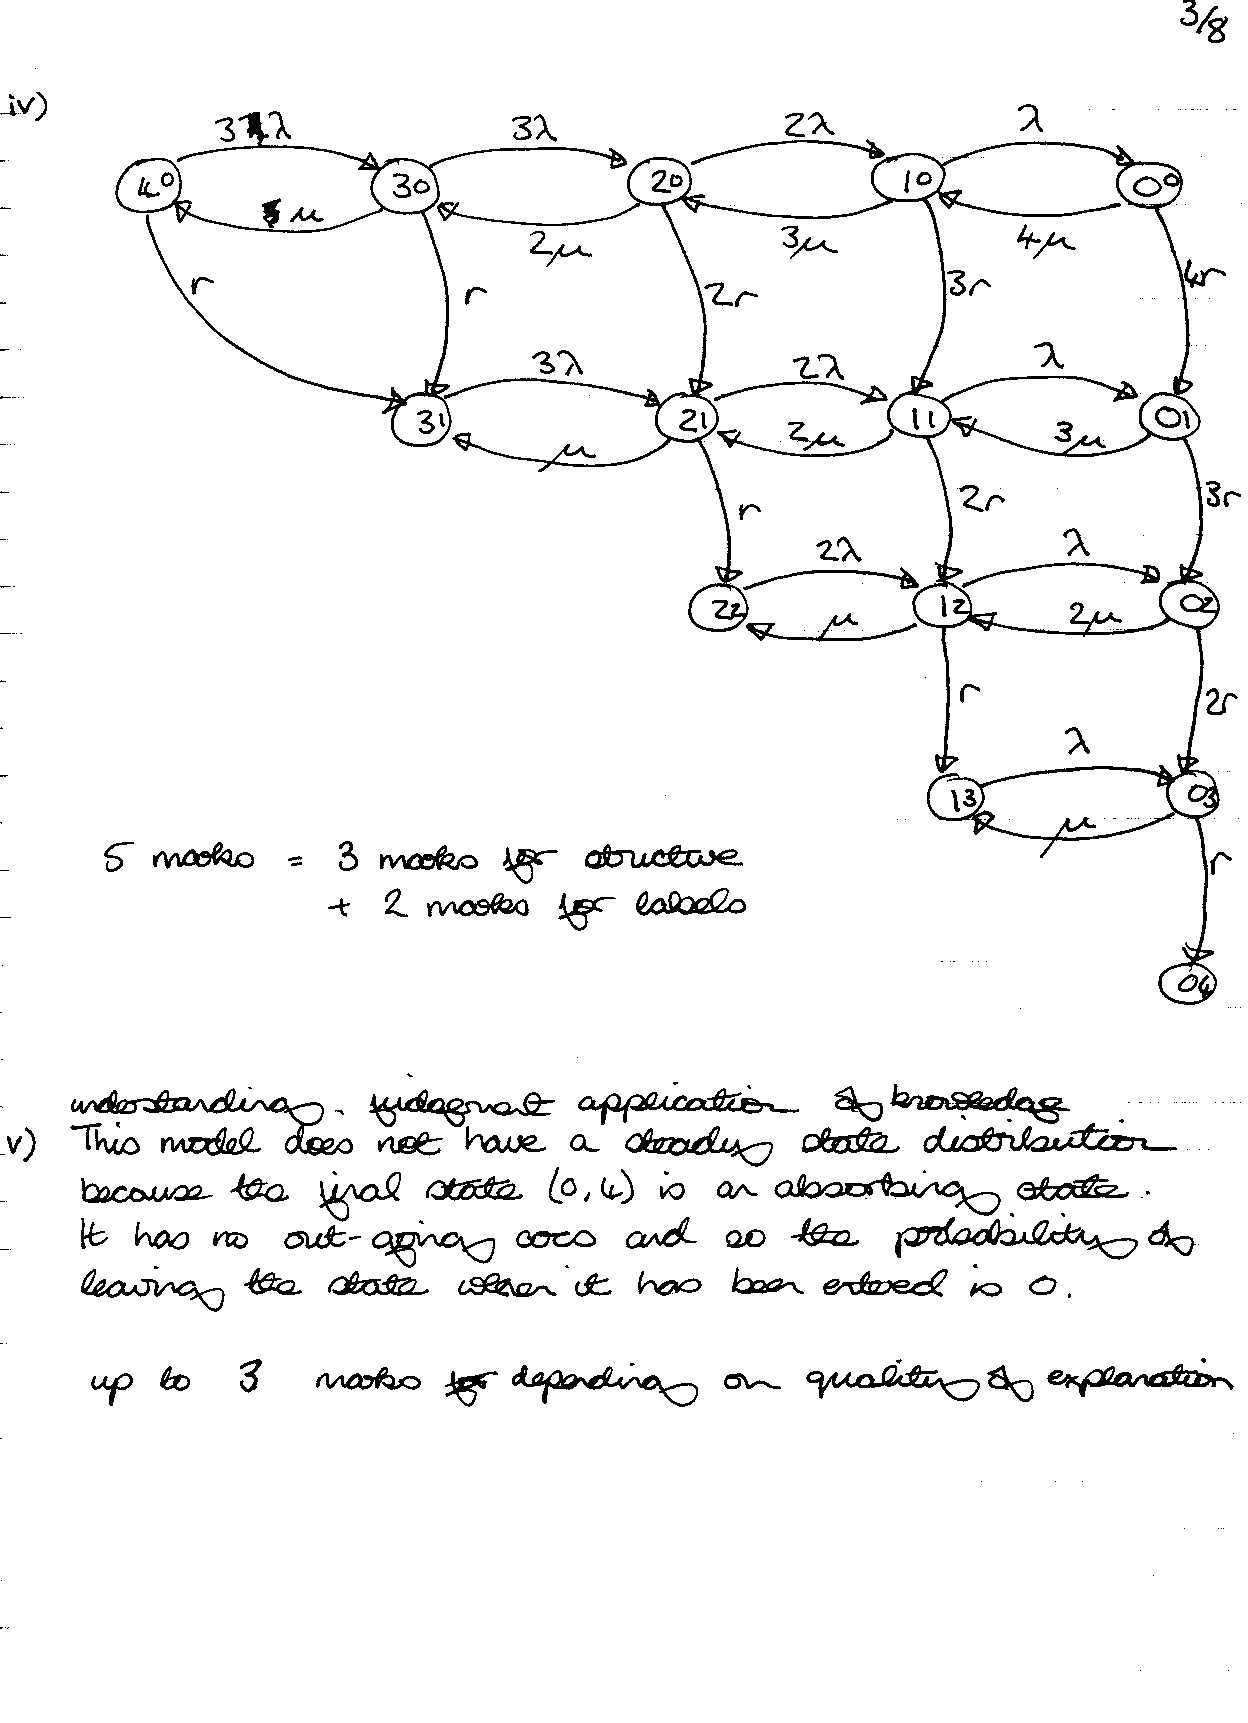 3/8
iv)
3λ 3λ 2λ λ
40 30 20 10 00
μ 2μ 3μ 4μ
r r 2r 3r 4r
3λ 2λ λ
31 21 11 01
μ 2μ 3μ
r 2r 3r
2λ λ
22 12 02
μ 2μ
r 2r
λ
13 03
μ
5 marks = 3 marks for structure
+ 2 marks for labels
r
04
understanding. judgement application of knowledge
v) This model does not have a steady state distribution
because the final state (0,4) is an absorbing state.
It has no out-going arcs and so the probability of
leaving the state when it has been entered is 0.
up to 3 marks for depending on quality of explanation